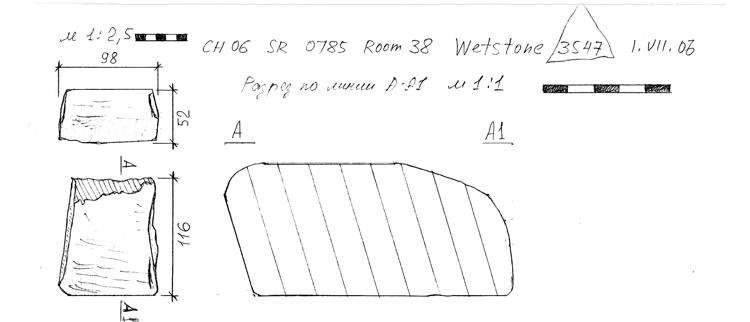 м 1:2,5 CH 06 SR 0785 Room 38 Wetstone 3547 1.VII.06
98
Разрез по линии А-А1 м 1:1
52
A A1
A
116
A1